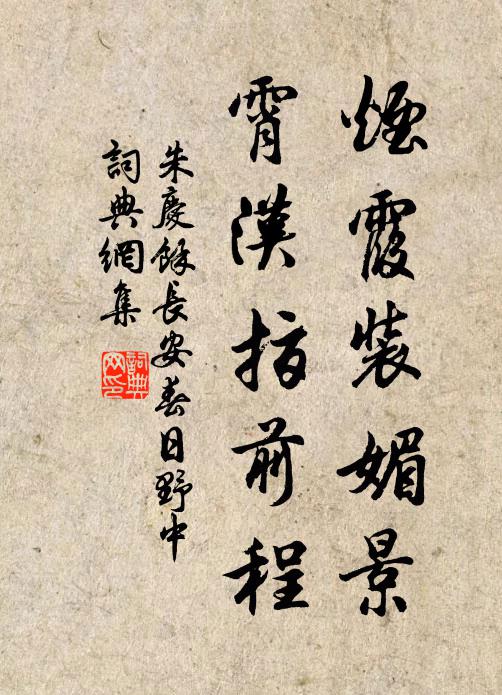 煙霞裝媚景
霄漢指前程
朱慶餘長安春日野中
詞典網集
詞典
网印